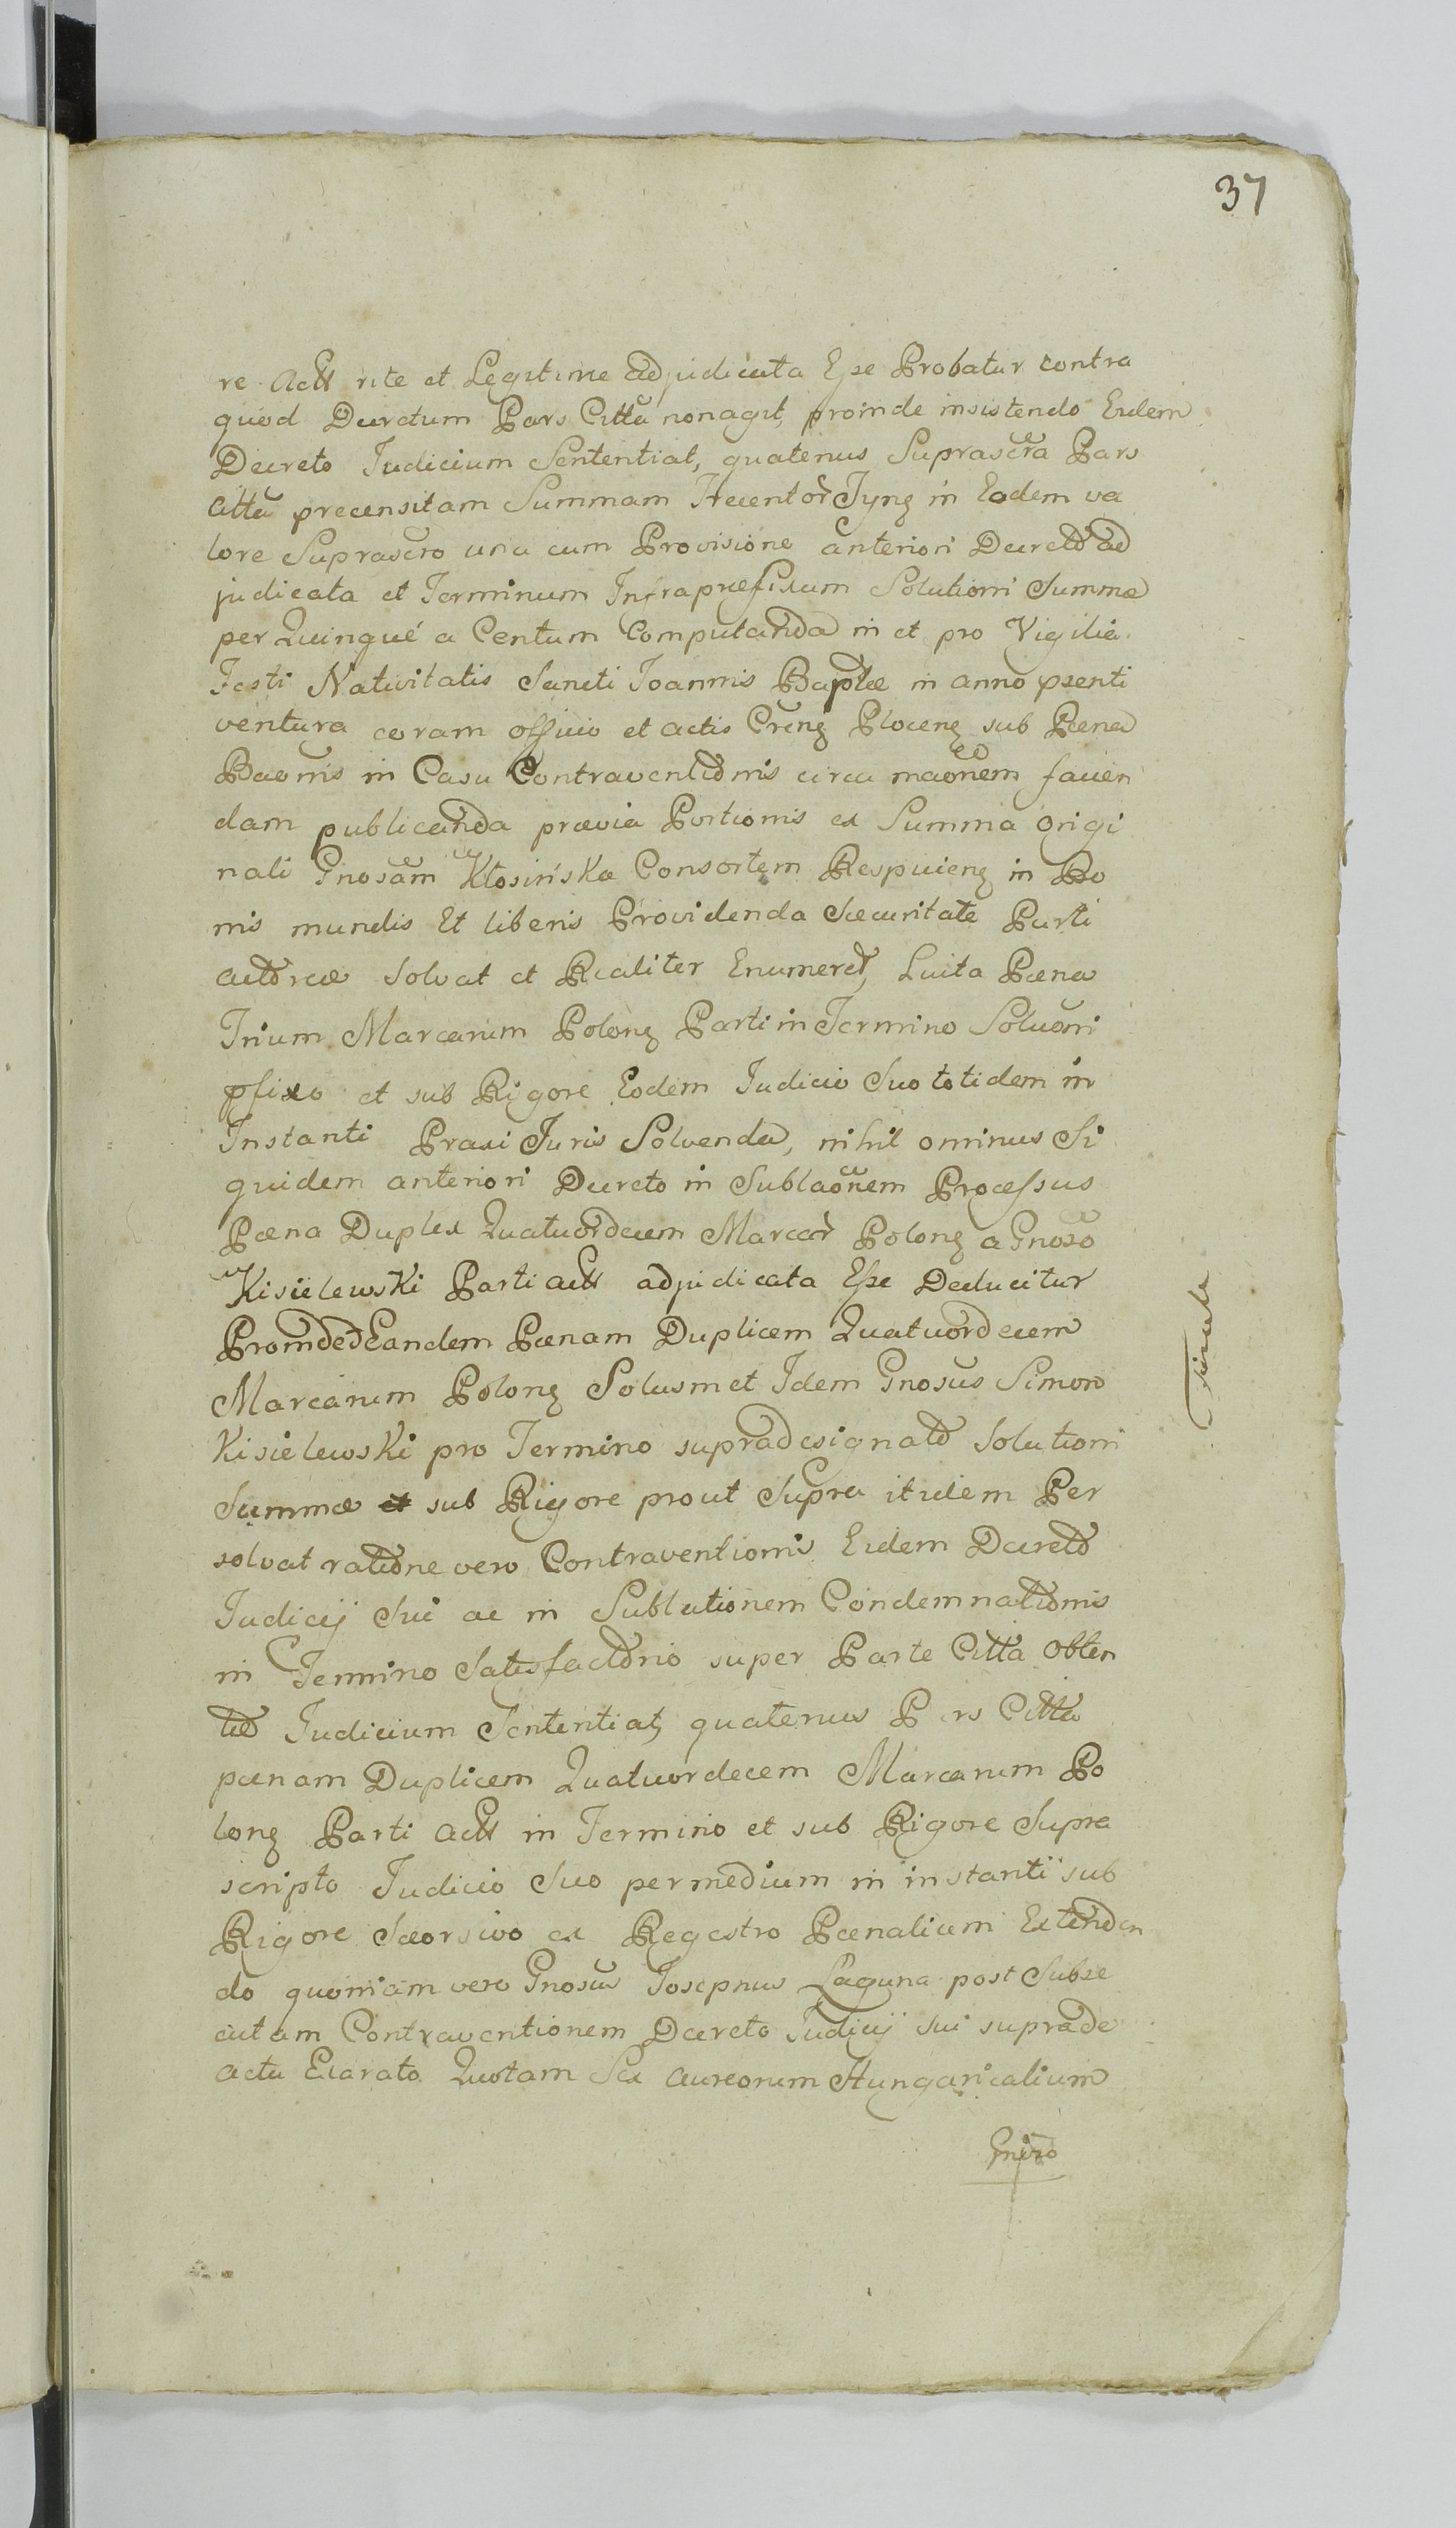 37
re Actt rite et Legitime adjudicata Esse Probatur contra
quod Decretum Pars Citta non agit, proinde insistendo Eidem
Decreto Judicium Sententiat, quatenus Suprascra Pars
Citta precensitam Summam Trecentor Tynz in Eodem va
lore Suprascro una cum Provisione anteriori Decreto ad
judicata et Terminum Infra præfixum Solutioni Summæ
per Quinque a Centum Computanda in et pro Vigilia
Festi Nativitatis Sancti Joannis Baptæ in anno psenti
ventura coram officio et actis Crenz Plocenz sub Pæna
Baonis in Casu Contraventionis circa maonem faven
dam publicanda prævia Portionis ex Summa origi
nali Gnosam Kłosińska Consortem Respicienz in Bo
nis mundis Et liberis Providenda Securitate Parti
actoreæ solvat et Realiter Enumeret, Luita Pæna
Trium Marcarum Polonz Parti in Termino Soluoni
pfixo et sub Rigore Eodem Judicio Suo totidem in
Instanti Praxi Juris Solvenda, nihil ominus Si
quidem anteriori Decreto in Sublaonem Processus
Pæna Duplex Quatuordecem Marcar Polonz a Gnoso
Kisielewski Parti actt adjudicata Esse Deducitur
Proinde Eandem Pænam Duplicem Quatuordecem
Marcarum Polonz Solusmet Idem Gnosus Simon
Kisielewski pro Termino supradesignato Solutioni
Summæ et sub Rigore prout Supra itidem Per
solvat ratione vero Contraventionis Eidem Decreto
Judicij Sui ac in Sublationem Condemnationis
in Termino Satisfactorio super Parte Citta obten
tæ Judicium Sententiat, quatenus Pars Citta
pænam Duplicem Quatuordecem Marcarum Po
lonz Parti actt in Termino et sub Rigore Supra
scripto Judicio Suo per medium in instanti sub
Rigore Seorsivo ex Regestro Pænalium Extenden
do quoniam vero Gnosus Josephus Laguna post Subse
cutam Contraventionem Decreto Judicij sui suprade
actu Exarato Quotam Sex aureorum Hungaricalium